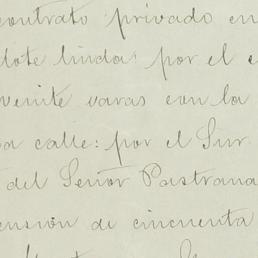 contrato privado en
lote linda: por el
veinte varas con la
a calle: por el Sur
del Señor Pastrana
ensión de cincuenta